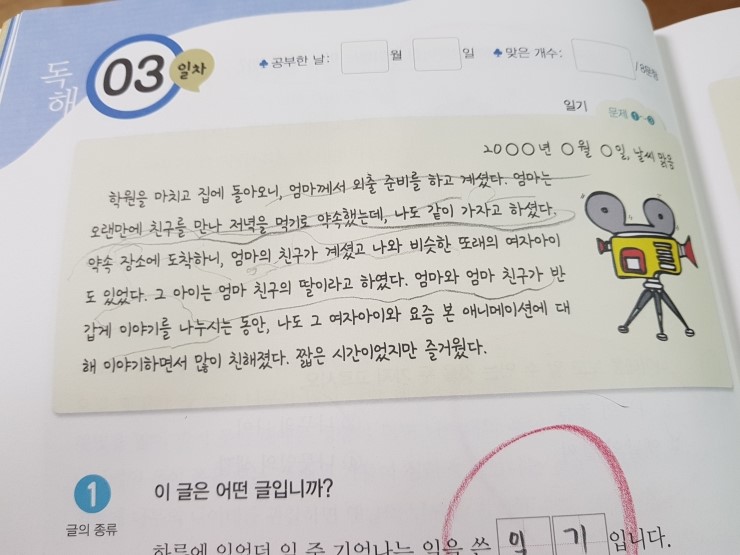 독해
03 일차
♣공부한 날: 월 일 ♣맞은 개수: /8문항
일기 문제 1~3
20○○년 ○월 ○일, 날씨 맑음
학원을 마치고 집에 돌아오니, 엄마께서 외출 준비를 하고 계셨다. 엄마는
오랜만에 친구를 만나 저녁을 먹기로 약속했는데, 나도 같이 가자고 하셨다.
약속 장소에 도착하니, 엄마의 친구가 계셨고 나와 비슷한 또래의 여자아이
도 있었다. 그 아이는 엄마 친구의 딸이라고 하였다. 엄마와 엄마 친구가 반
갑게 이야기를 나누시는 동안, 나도 그 여자아이와 요즘 본 애니메이션에 대
해 이야기하면서 많이 친해졌다. 짧은 시간이었지만 즐거웠다.
1 이 글은 어떤 글입니까?
글의 종류
하루에 있었던 일 중 기억나는 일을 쓴 일 기 입니다.